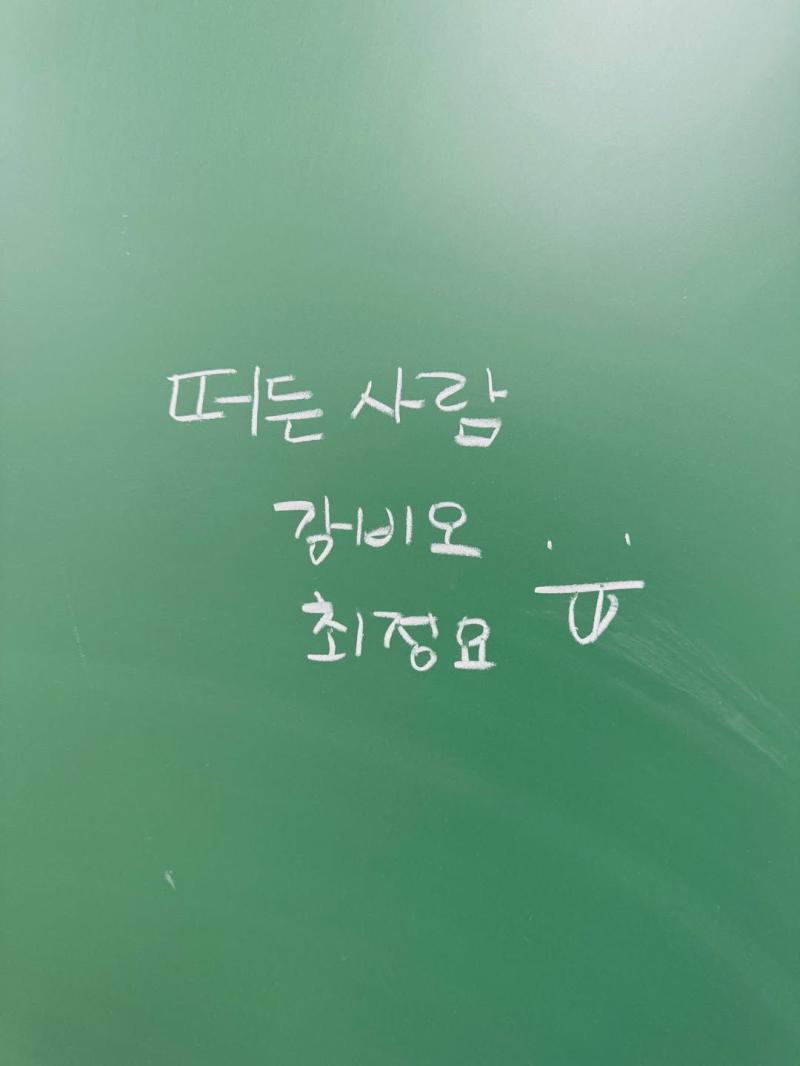 떠든 사람
강비오
최정요